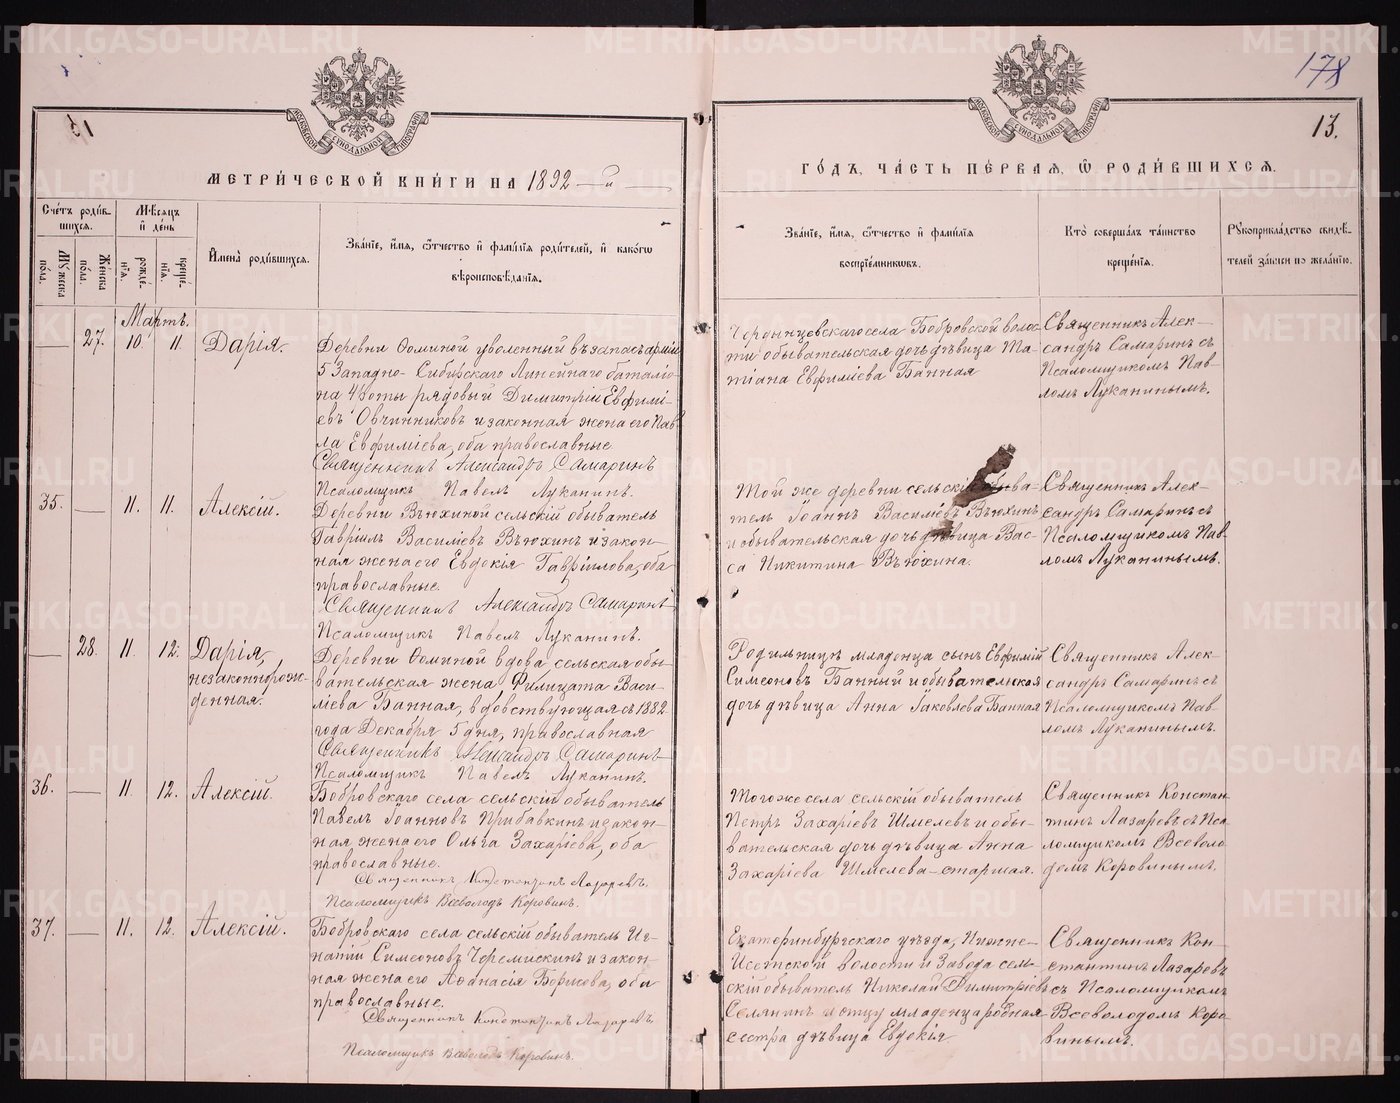 178
13.
МЕТРИ́ЧЕСКОЙ КНИ́ГИ НА 1892 й
ГО́ДЪ, ЧА́СТЬ ПЕ́РВАЯ, Ѽ РОДИ́ВШИХСЯ.
МОСКОВСКОЙ СУНОДАЛЬНОЙ ТИПОГРАФІИ
МОСКОВСКОЙ СУНОДАЛЬНОЙ ТИПОГРАФІИ
Счетъ роди́вшихся.
Му́жеска по́ла.
Же́нска по́ла.
Мѣсяцъ и день
рожде́нія.
креще́нія.
Имена̀ роди́вшихся.
Зва́ніе, и́мя, ѻ́тчество и фами́лія роди́телей, и како́гѡ
вѣроисповѣ́данія.
Зва́ніе, и́мя, ѻ́тчество и фами́лія
воспріе́мникѡвъ.
Кто̀ соверша́лъ та́инство
креще́нія.
Рꙋкоприкла́дство свидѣ́-
телей за́писи по жела́нію.
Мартъ.
27. 10. 11 Дарія.
Деревни Ѳоминой уволенный въ запасъ арміи
5 Западно-Сибирскаго Линейнаго баталіо-
на 4 роты рядовый Димитрій Евфимі-
евъ Овчинниковъ и законная жена его Пав-
ла Евфиміева, оба православные.
Священникъ Александръ Самаринъ
Псаломщикъ Павелъ Луканинъ.
села Бобровской воло-
сти обывательская дочь дѣвица Та-
тіана Евфиміева Банная
Священникъ Алек-
сандръ Самаринъ съ
Псаломщикомъ Пав-
ломъ Луканинымъ.
35. — 11. 11. Алексій.
Деревни Вьюхиной сельскій обыватель
Гавріилъ Василіевъ Вьюхинъ и закон-
ная жена его Евдокія Гавріилова, оба
православные.
Священникъ Александръ Самаринъ
Псаломщикъ Павелъ Луканинъ.
Той же деревни сельскій обыва-
тель Іоаннъ Василіевъ Вьюхинъ
и обывательская дочь дѣвица Вас-
са Никитина Вьюхина.
Священникъ Алек-
сандръ Самаринъ съ
Псаломщикомъ Пав-
ломъ Луканинымъ.
— 28. 11. 12. Дарія,
незаконнорож-
денная.
Деревни Ѳоминой вдова, сельская обы-
вательская жена Филицата Васи-
ліева Банная, вдовствующая съ 1882
года Декабря 5 дня, православная
Священникъ Александръ Самаринъ
Псаломщикъ Павелъ Луканинъ.
Родильницы младенца сынъ Евфимій
Симеоновъ Банный и обывательская
дочь дѣвица Анна Іаковлева Банная
Священникъ Алек-
сандръ Самаринъ съ
Псаломщикомъ Пав
ломъ Луканинымъ.
36. — 11 12. Алексій.
Бобровскаго села сельскій обыватель
Павелъ Іоанновъ Прибавкинъ и закон-
ная жена его Ольга Захаріева, оба
православные.
Священникъ Константинъ Лазаревъ.
Псаломщикъ Всеволодъ Коровинъ.
Того же села сельскій обыватель
Петръ Захаріевъ Шмелевъ и обы-
вательская дочь дѣвица Анна
Захаріева Шмелева-старшая.
Священникъ Констан
тинъ Лазаревъ съ Пса
ломщикомъ Всеволо
домъ Коровинымъ.
37. — 11. 12. Алексій.
Бобровскаго села сельскій обыватель Иг-
натій Симеоновъ Черемискинъ и закон-
ная жена его Аѳанасія Борисова, оба
православные.
Священникъ Константинъ Лазаревъ
Псаломщикъ Всеволодъ Коровинъ.
Екатеринбургскаго уѣзда, Нижне-
Исетской волости и Завода сель-
скій обыватель Николай Димитріевъ
Селянинъ и отцу младенца родная
сестра дѣвица Евдокія
Священникъ Кон-
стантинъ Лазаревъ
съ Псаломщикомъ
Всеволодомъ Коро
винымъ.
METRIKI.GASO-URAL.RU